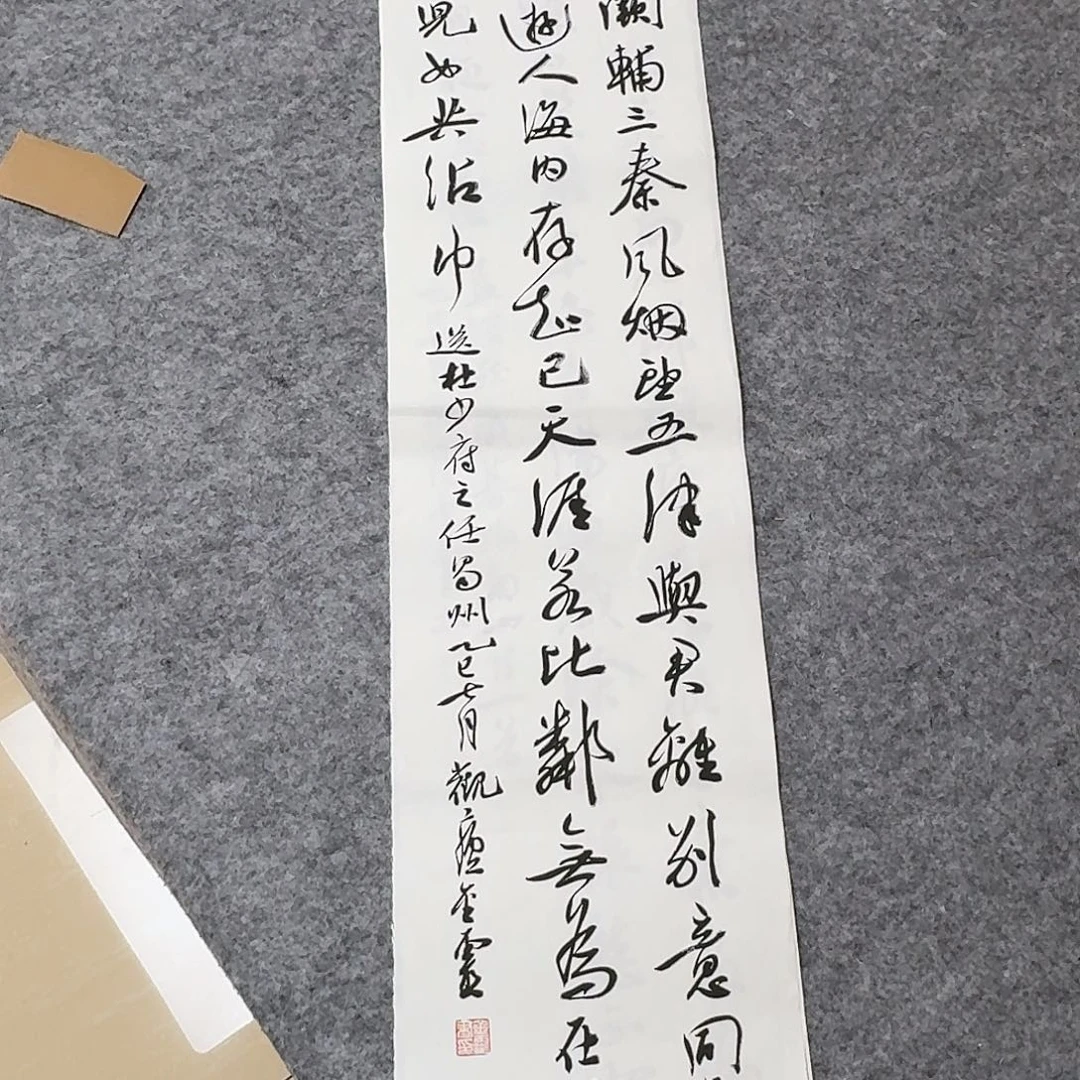 闕輔三秦風烟望五津與君離別意同
遊人海內存知己天涯若比鄰無為在
兒女共沾巾
送杜少府之任蜀州乙巳七月觀